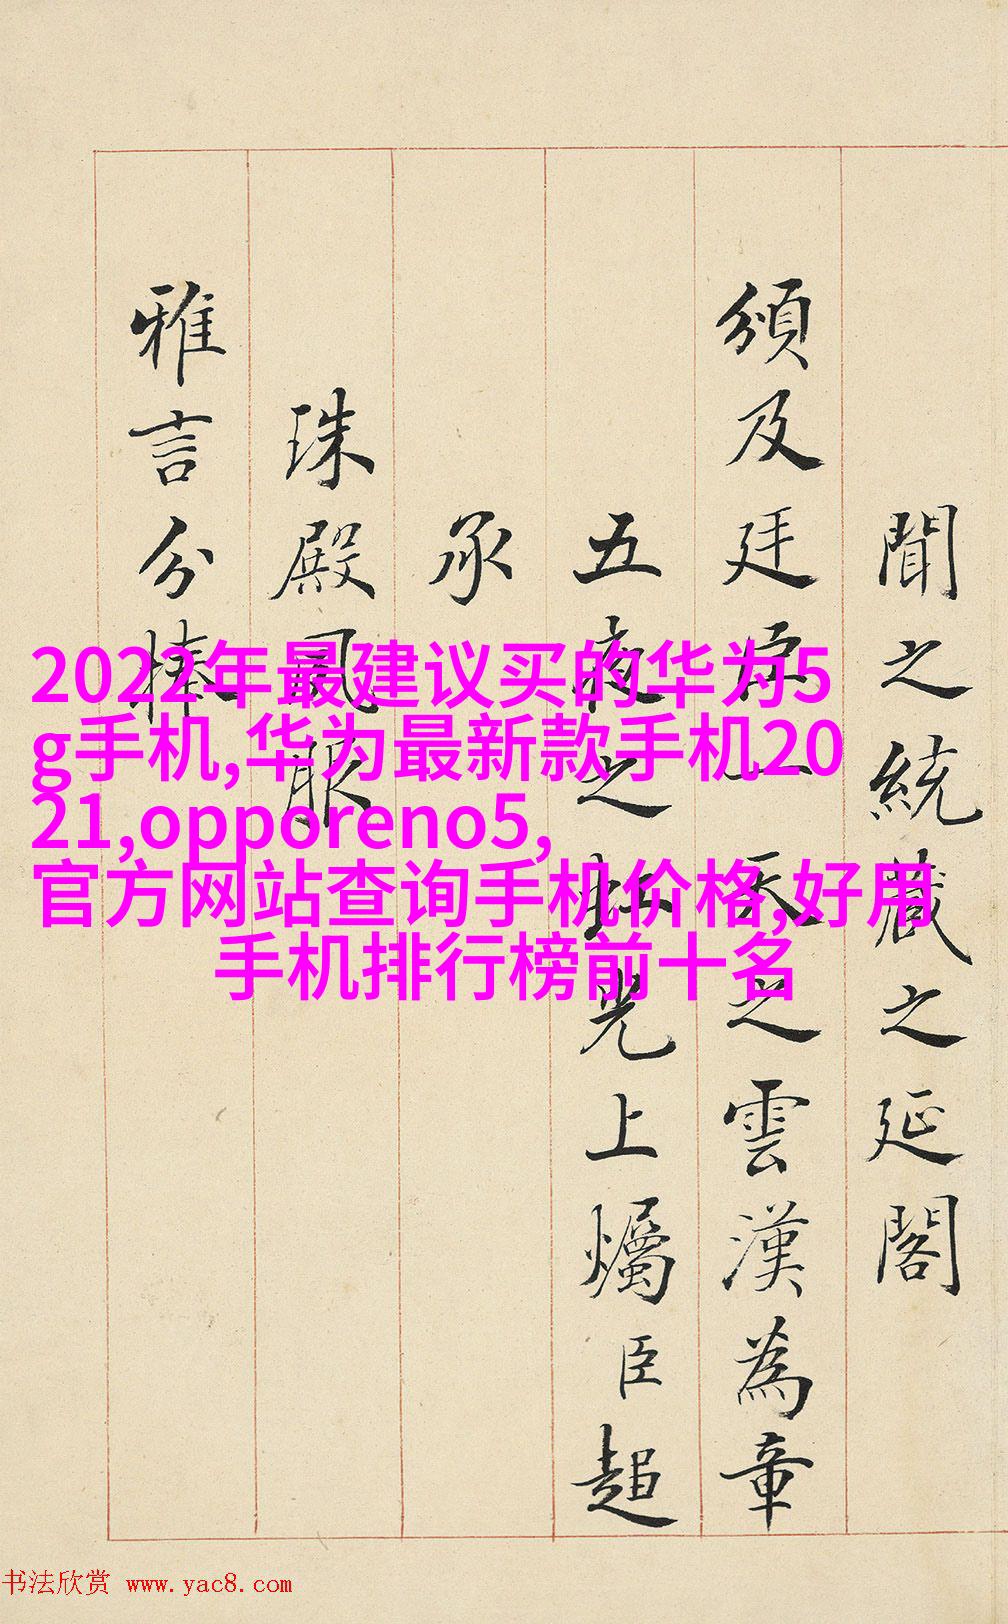 聞之統藏之延閣
頒及廷虎一天之雲漢為章
五夜之虹光上燭臣超
承
珠殿風服
雅言分棒
2022年最建议买的华为5
g手机,华为最新款手机20
21,opporeno5,
官方网站查询手机价格,好用
手机排行榜前十名
书法欣赏 www.yac8.com